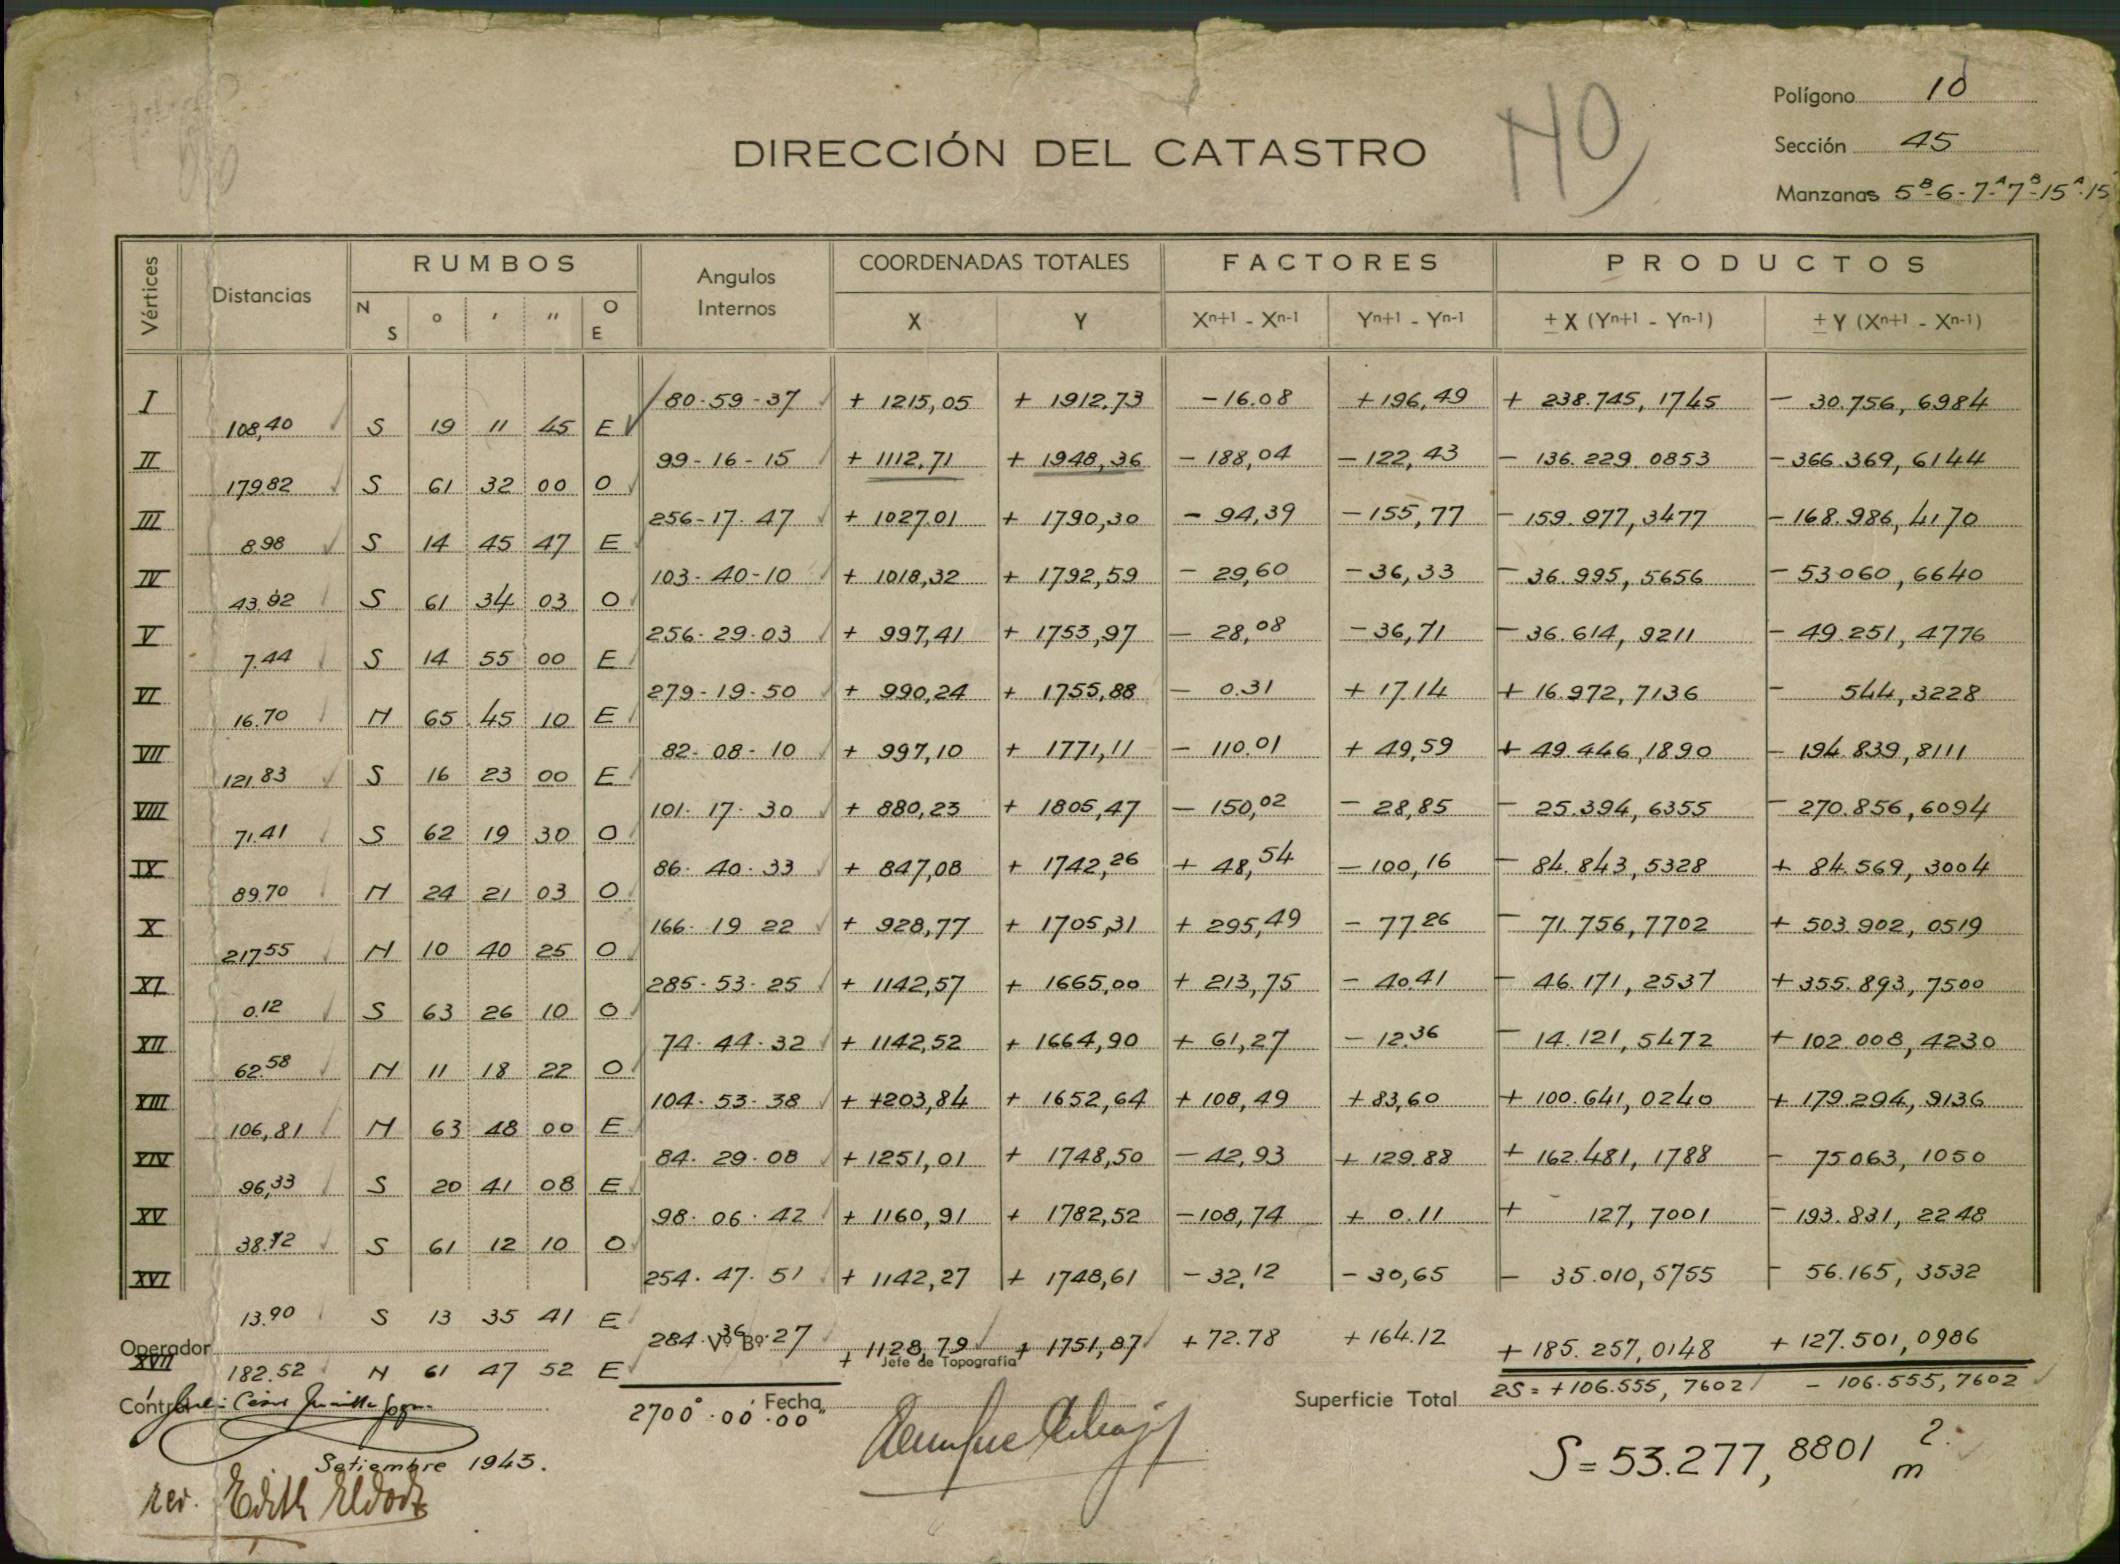 HO
Polígono 10
Sección 45
Manzanas 5B-6-7-A7B-15A-15
DIRECCIÓN DEL CATASTRO
Vértices Distancias RUMBOS Angulos Internos COORDENADAS TOTALES FACTORES PRODUCTOS
N S ° ′ ″ O E X Y Xn+1 - Xn-1 Yn+1 - Yn-1 ± X (Yn+1 - Yn-1) ± Y (Xn+1 - Xn-1)
I 80-59-37 + 1215,05 + 1912,73 - 16.08 + 196,49 + 238.745,1745 - 30.756,6984
108,40 S 19 11 45 E
II 99-16-15 + 1112,71 + 1948,36 - 188,04 - 122,43 - 136.229.0853 - 366.369,6144
179.82 S 61 32 00 O
III 256-17-47 + 1027.01 + 1790,30 - 94,39 - 155,77 - 159.977,3477 - 168.986,4170
8.98 S 14 45 47 E
IV 103-40-10 + 1018,32 + 1792,59 - 29,60 - 36,33 - 36.995,5656 - 53.060,6640
43.92 S 61 34 03 O
V 256-29-03 + 997,41 + 1753,97 - 28,08 - 36,71 - 36.614,9211 - 49.251,4776
7.44 S 14 55 00 E
VI 279-19-50 + 990,24 + 1755,88 - 0.31 + 17.14 + 16.972,7136 - 544,3228
16.70 N 65 45 10 E
VII 82-08-10 + 997,10 + 1771,11 - 110.01 + 49,59 + 49.446,1890 - 194.839,8111
121.83 S 16 23 00 E
VIII 101-17-30 + 880,23 + 1805,47 - 150,02 - 28,85 - 25.394,6355 - 270.856,6094
71.41 S 62 19 30 O
IX 86-40-33 + 847,08 + 1742,26 + 48,54 - 100,16 - 84.843,5328 + 84.569,3004
89.70 N 24 21 03 O
X 166-19 22 + 928,77 + 1705,31 + 295,49 - 77.26 - 71.756,7702 + 503.902,0519
217.55 N 10 40 25 O
XI 285-53-25 + 1142,57 + 1665,00 + 213,75 - 40.41 - 46.171,2537 + 355.893,7500
0.12 S 63 26 10 O
XII 74-44-32 + 1142,52 + 1664,90 + 61,27 - 12.36 - 14.121,5472 + 102.008,4230
62.58 N 11 18 22 O
XIII 104-53-38 + 1203,84 + 1652,64 + 108,49 + 83,60 + 100.641,0240 + 179.294,9136
106,81 N 63 48 00 E
XIV 84-29-08 + 1251,01 + 1748,50 - 42,93 + 129.88 + 162.481,1788 - 75063,1050
96,33 S 20 41 08 E
XV 98-06-42 + 1160,91 + 1782,52 - 108,74 + 0.11 + 127,7001 - 193.831,2248
38.72 S 61 12 10 O
XVI 254-47-51 + 1142,27 + 1748,61 - 32,12 - 30,65 - 35.010,5755 - 56.165,3532
13.90 S 13 35 41 E
Operador
XVII 284-36-27 + 1128,79 + 1751,87 + 72.78 + 164.12 + 185.257,0148 + 127.501,0986
Vº Bº
Jefe de Topografía
182.52 N 61 47 52 E
2700°.00'.00"
Fecha
Superficie Total 2S = + 106.555,7602 - 106.555,7602
Control
S = 53.277,8801 m2.
Setiembre 1945.
rev. Edith